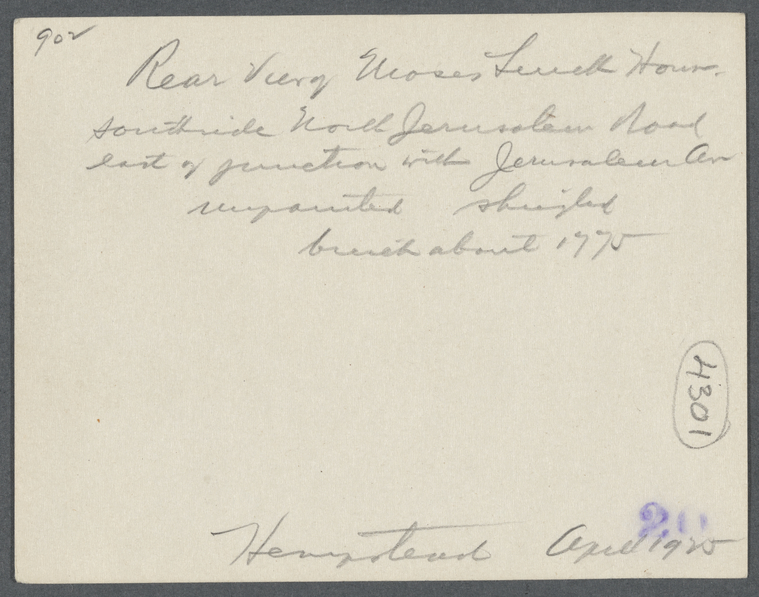 902
Rear View of Moses Smith House
southside North Jerusalem Road
east of junction with Jerusalem Av
unpainted shingled
built about 1775
4301
Hempstead April 1925